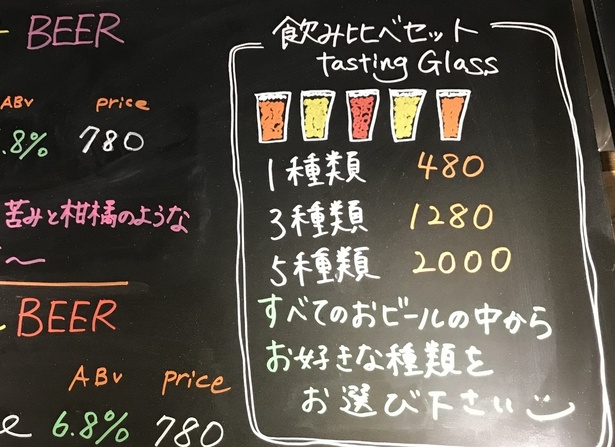 BEER
ABV price
.8% 780
苦みと柑橘のような
～
BEER
ABV price
e 6.8% 780
飲み比べセット
tasting Glass
1種類 480
3種類 1280
5種類 2000
すべてのおビールの中から
お好きな種類を
お選び下さい